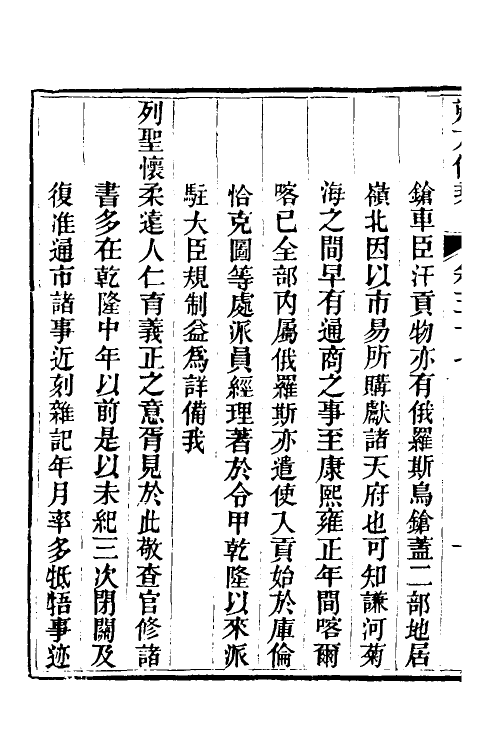 鎗車臣汗貢物亦有俄羅斯鳥鎗蓋二部地居
嶺北因以市易所購獻諸天府也可知謙河菊
海之間早有通商之事至康熙雍正年間喀爾
喀已全部內屬俄羅斯亦遣使入貢始於庫倫
恰克圖等處派員經理著於令甲乾隆以來派
駐大臣規制益爲詳備我
列聖懷柔遠人仁育義正之意胥見於此敬查官修諸
書多在乾隆中年以前是以未紀三次閉關及
復准通市諸事近刻雜記年月率多牴牾事迹